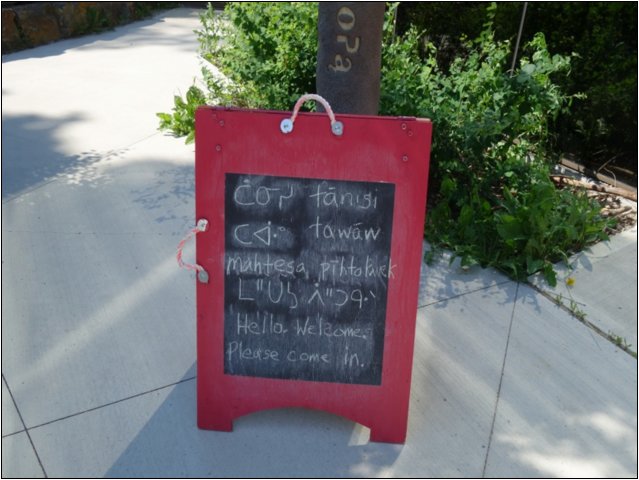 ᑖᓂᓯ tānisi
ᑕᐚ tawāw
mahtesa, pīhtokwēk
ᒪᐦᑌᓴ ᐲᐦᑐᑵᐠ
Hello. Welcome.
Please come in.